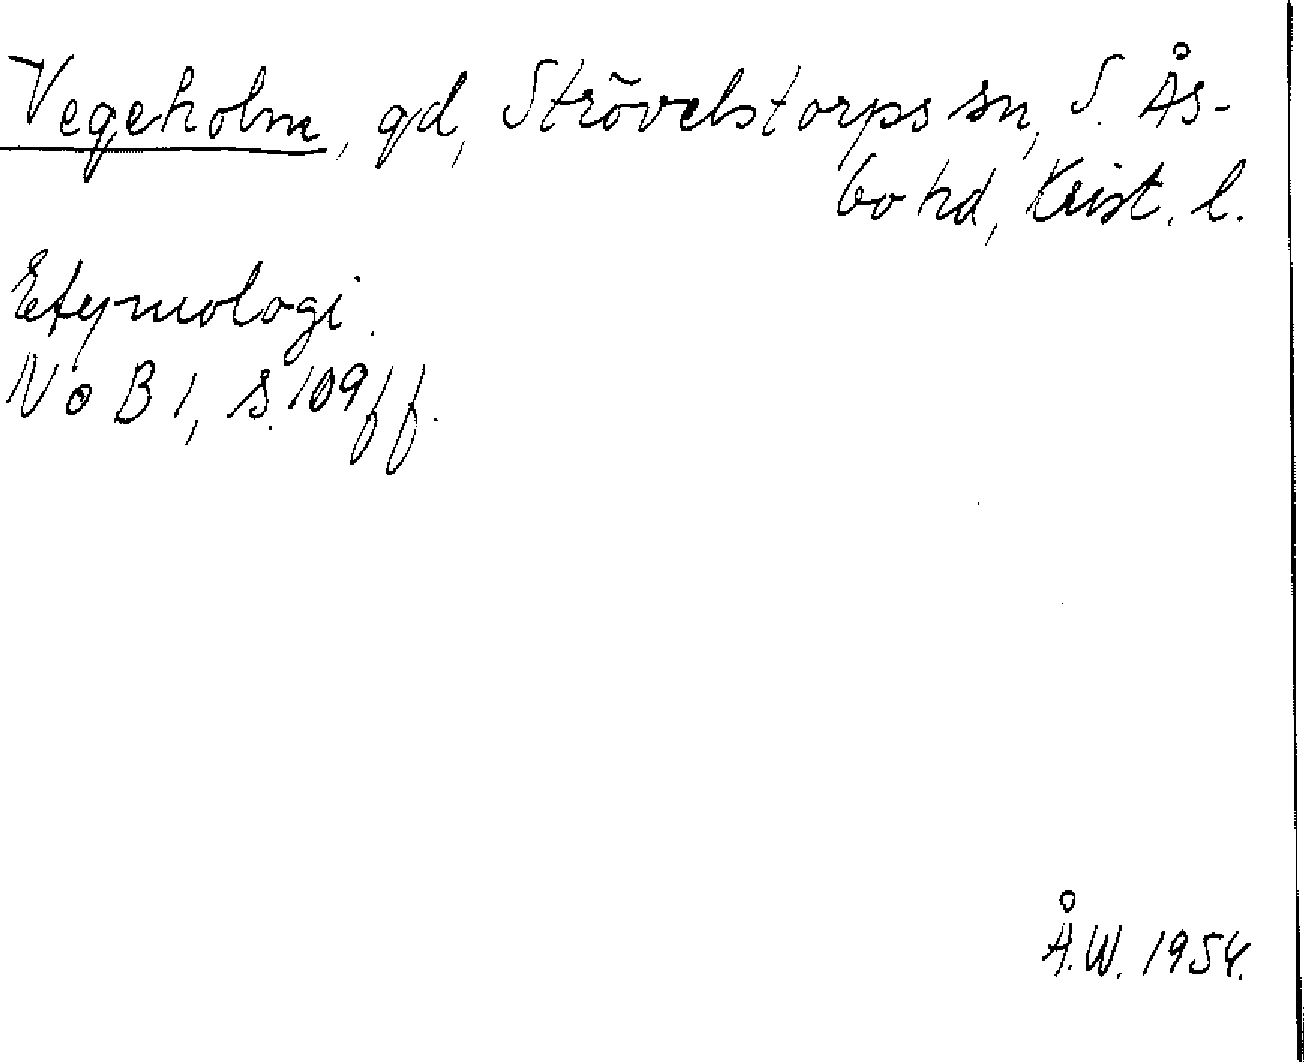 Vegeholm, gd, Strövelstorps sn, S. Ås-
bo hd, Krist. l.
Etymologi.
NoB 1, s. 109 ff.
Å.W. 1954.